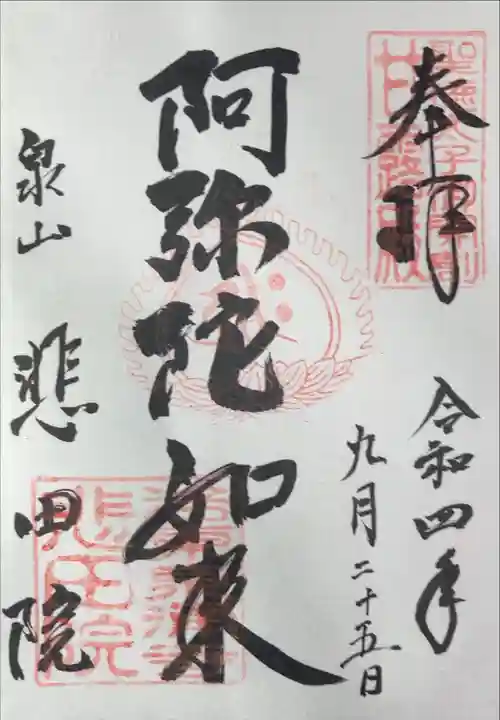 奉拝
令和四年
九月二十五日
阿弥陀如来
泉山 悲田院